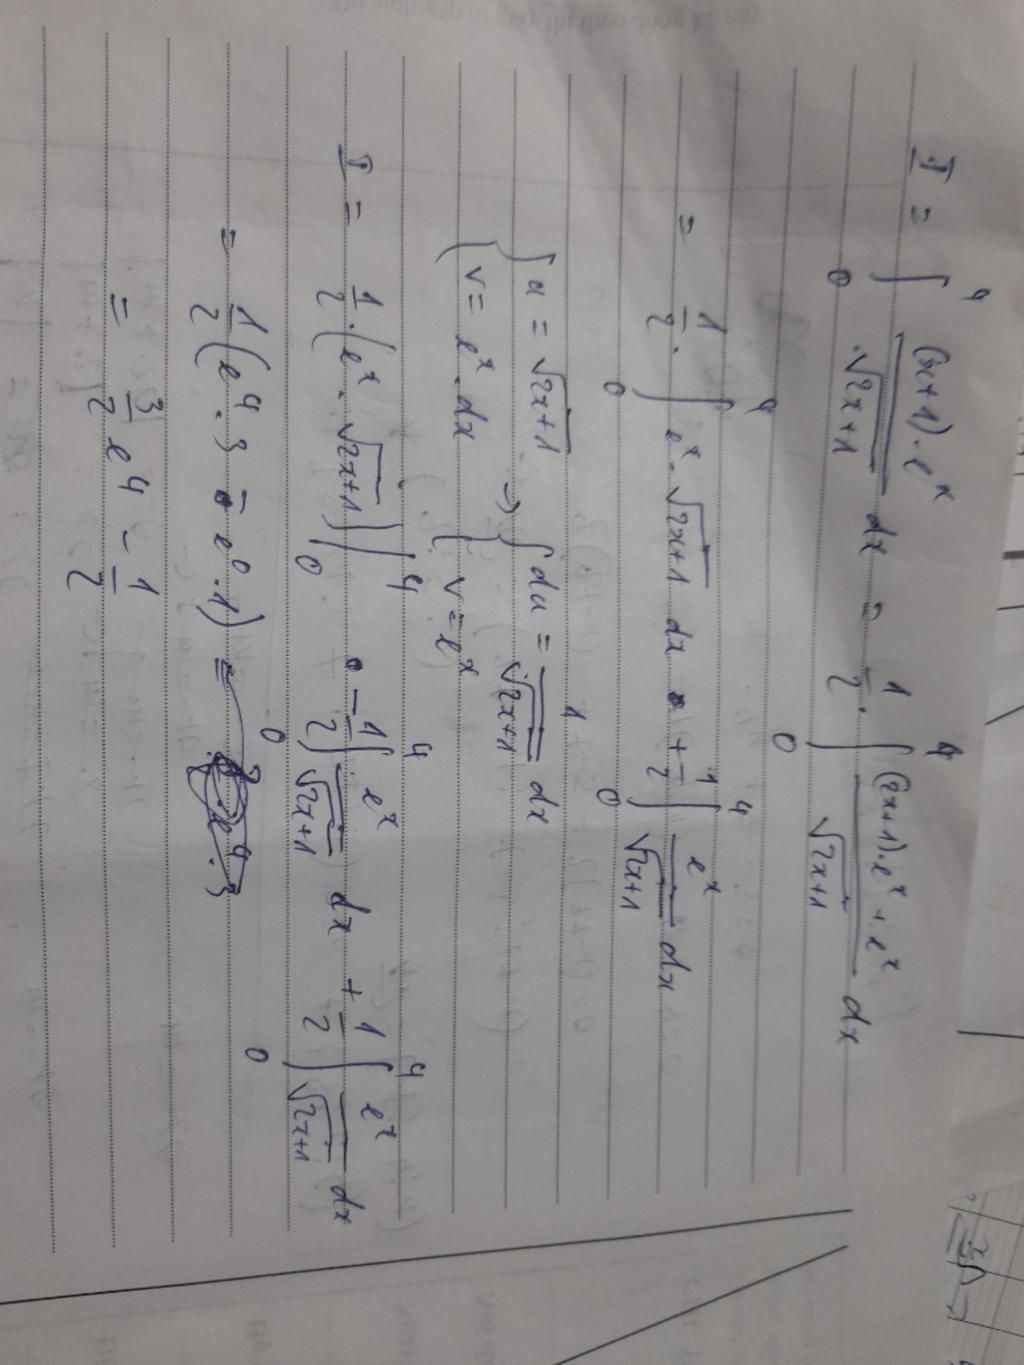 I = ∫₀⁴ (x+1).eˣ / √(2x+1) dx = 1/2 . ∫₀⁴ ((2x+1).eˣ + eˣ) / √(2x+1) dx
= 1/2 . ∫₀⁴ eˣ . √(2x+1) dx + 1/2 ∫₀⁴ eˣ / √(2x+1) dx
{ u = √(2x+1) → { du = 1 / √(2x+1) dx
{ v = eˣ . dx { v = eˣ
I = 1/2 . (eˣ . √(2x+1)) |₀⁴ - 1/2 ∫₀⁴ eˣ / √(2x+1) dx + 1/2 ∫₀⁴ eˣ / √(2x+1) dx
= 1/2 (e⁴ . 3 - e⁰ . 1) =
= 3/2 e⁴ - 1/2